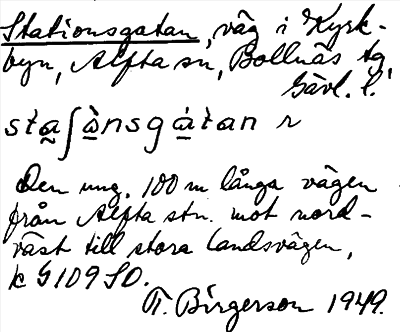 Stationsgatan, väg i Kyrk-
byn, Alfta sn, Bollnäs tg,
Gävl. l.
sta̱ʃὰ̱nsgά̱tan r
Den ung. 100 m långa vägen
från Alfta stn. mot nord-
väst till stora landsvägen,
k G109SO.
T. Birgerson 1949.